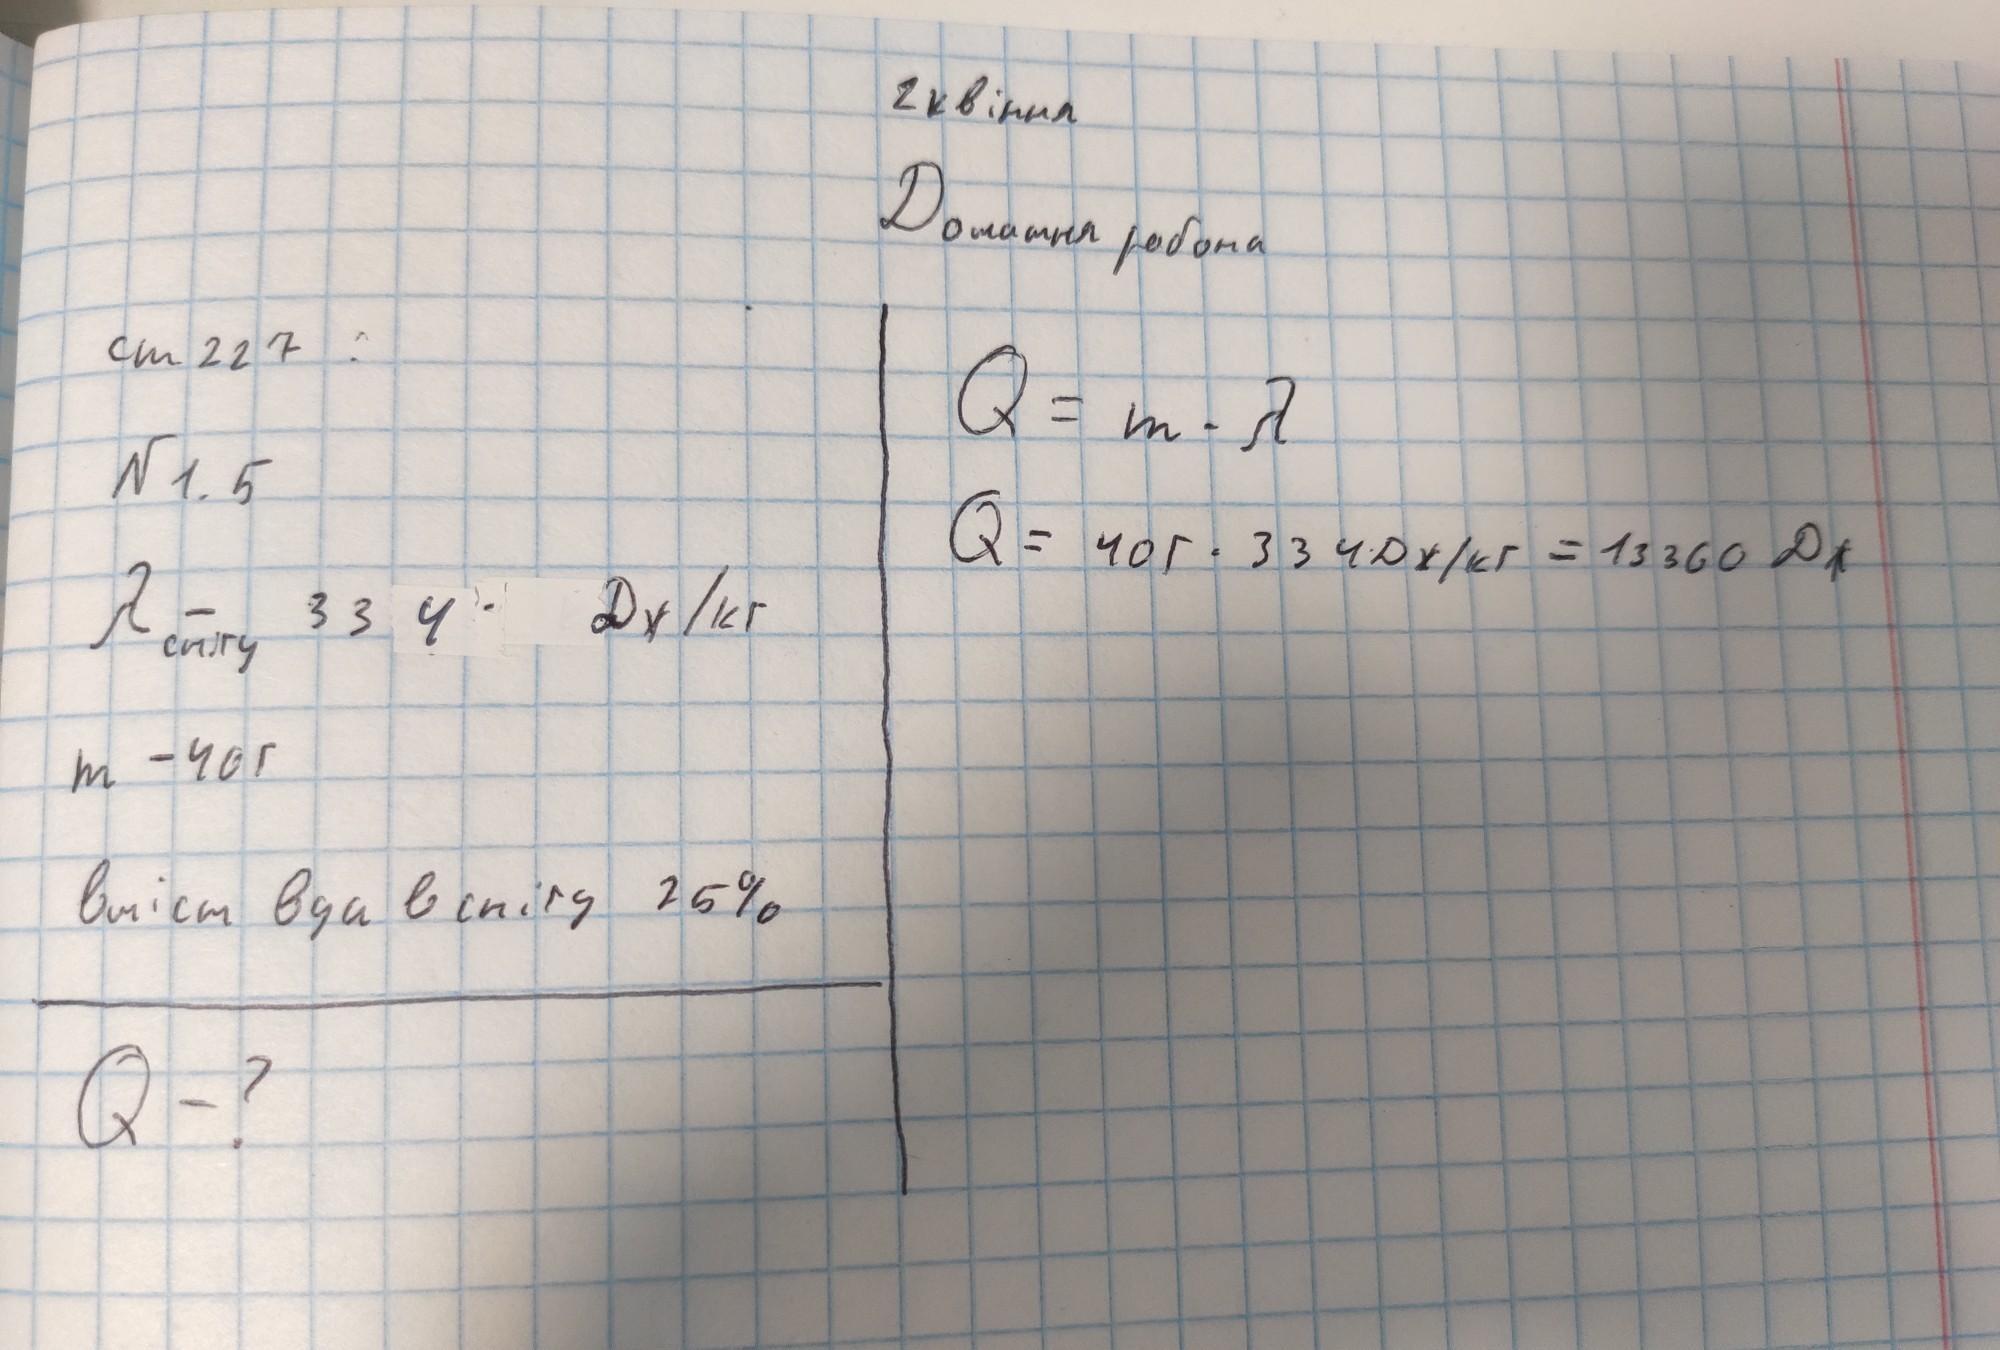 2 квітня
Домашня робота
ст 227:
N 1. 5
λ снігу - 334 · Дж/кг
m - 40г
вміст вда в снігу 25%
Q - ?
Q = m · λ
Q = 40г · 334Дж/кг = 13360 Дж